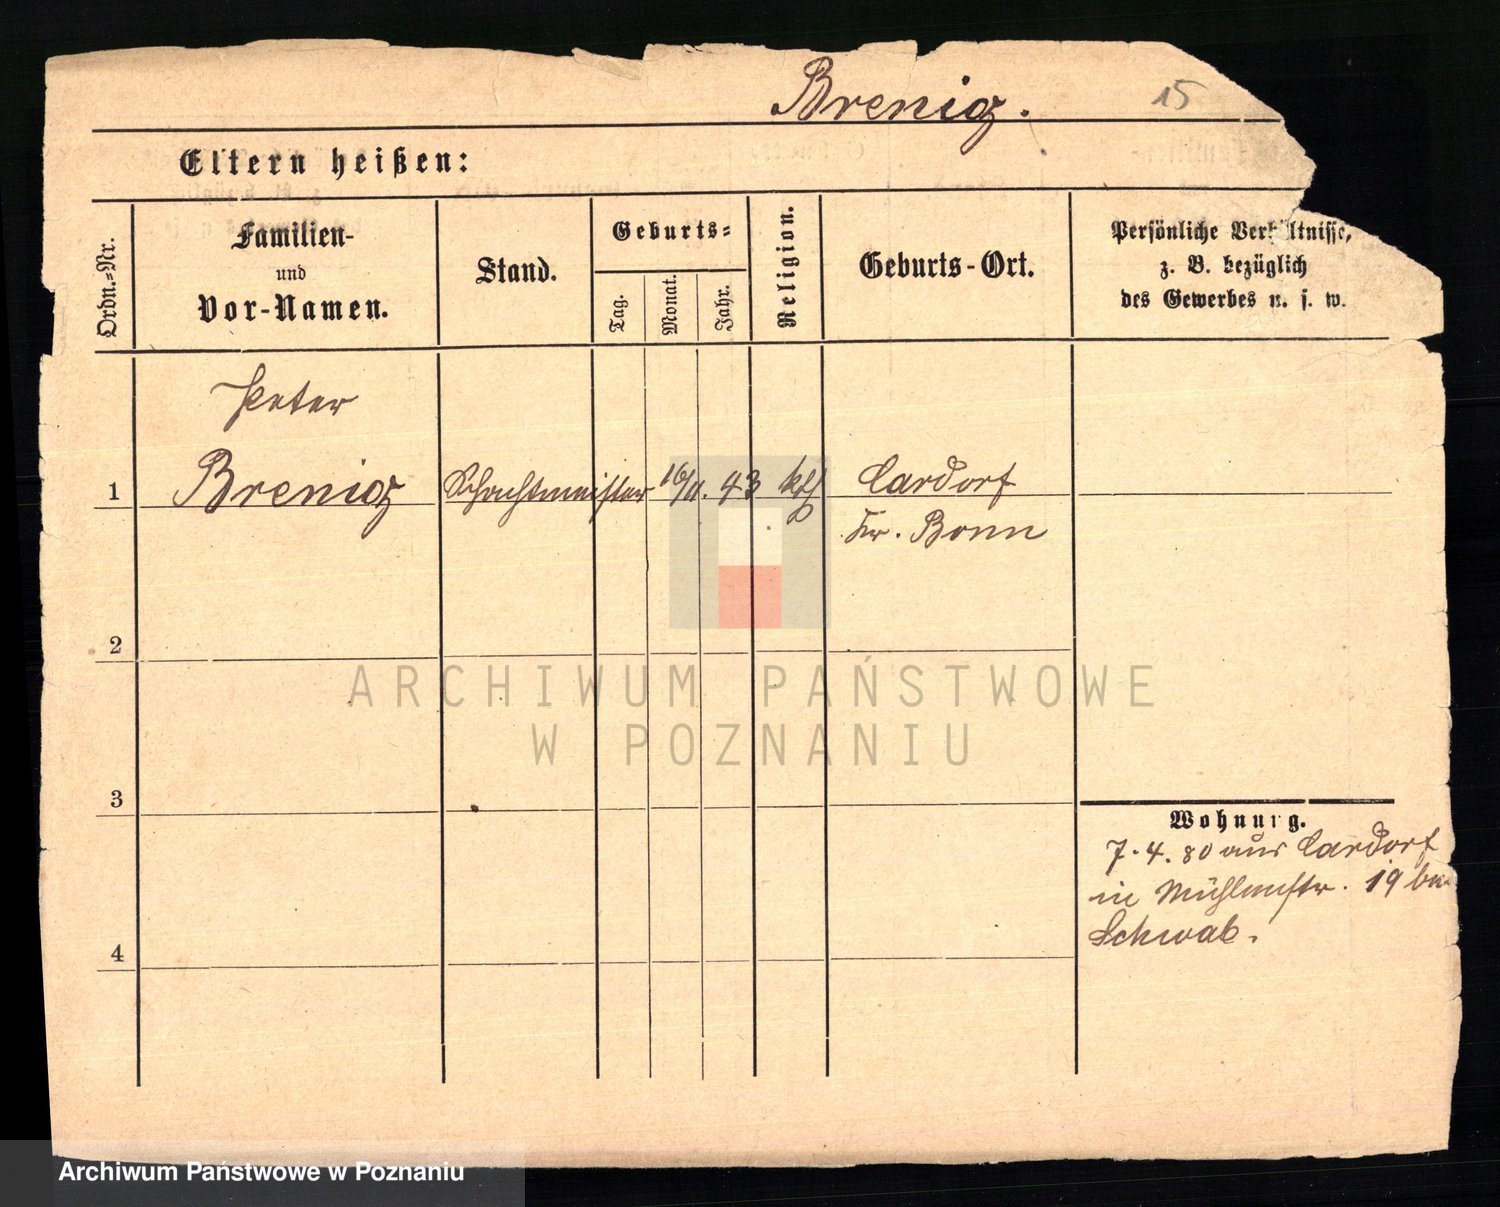 Brenig. 15
Eltern heißen:
Ordn.-Nr.
Familien-
und
Vor-Namen.
Stand.
Geburts-
Tag.
Monat.
Jahr.
Religion.
Geburts-Ort.
Persönliche Verhältnisse,
z. B. bezüglich
des Gewerbes u. s. w.
Peter
1 Brenig Schachtmeister 16/11. 43 kth Cardorf
Kr. Bonn
2
3
4
Wohnung.
7.4.80 aus Cardorf
in Mühlenstr. 19 bei
Schwab.
ARCHIWUM PAŃSTWOWE
W POZNANIU
Archiwum Państwowe w Poznaniu